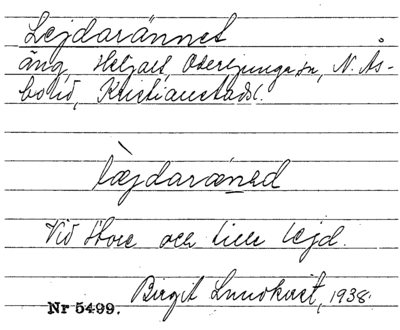 Lejdarännet
äng, Heljalt, Osterljunga sn, N. Ås-
bo hd, Kristianstads l.
læjdaræned
Vid Store och Lille Lejd.
Birgit Lundkvist, 1938.
Nr 5499.